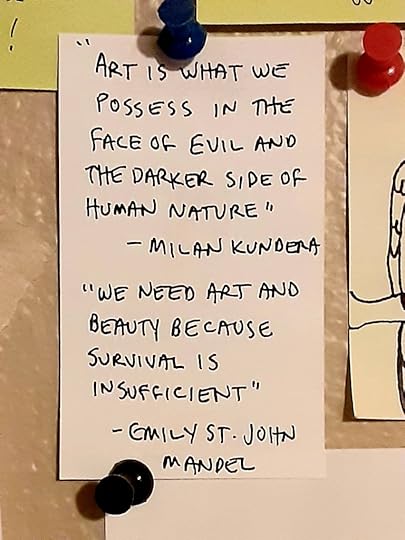 !
"ART IS WHAT WE
POSSESS IN THE
FACE OF EVIL AND
THE DARKER SIDE OF
HUMAN NATURE"
- MILAN KUNDERA
"WE NEED ART AND
BEAUTY BECAUSE
SURVIVAL IS
INSUFFICIENT"
- EMILY ST. JOHN
MANDEL